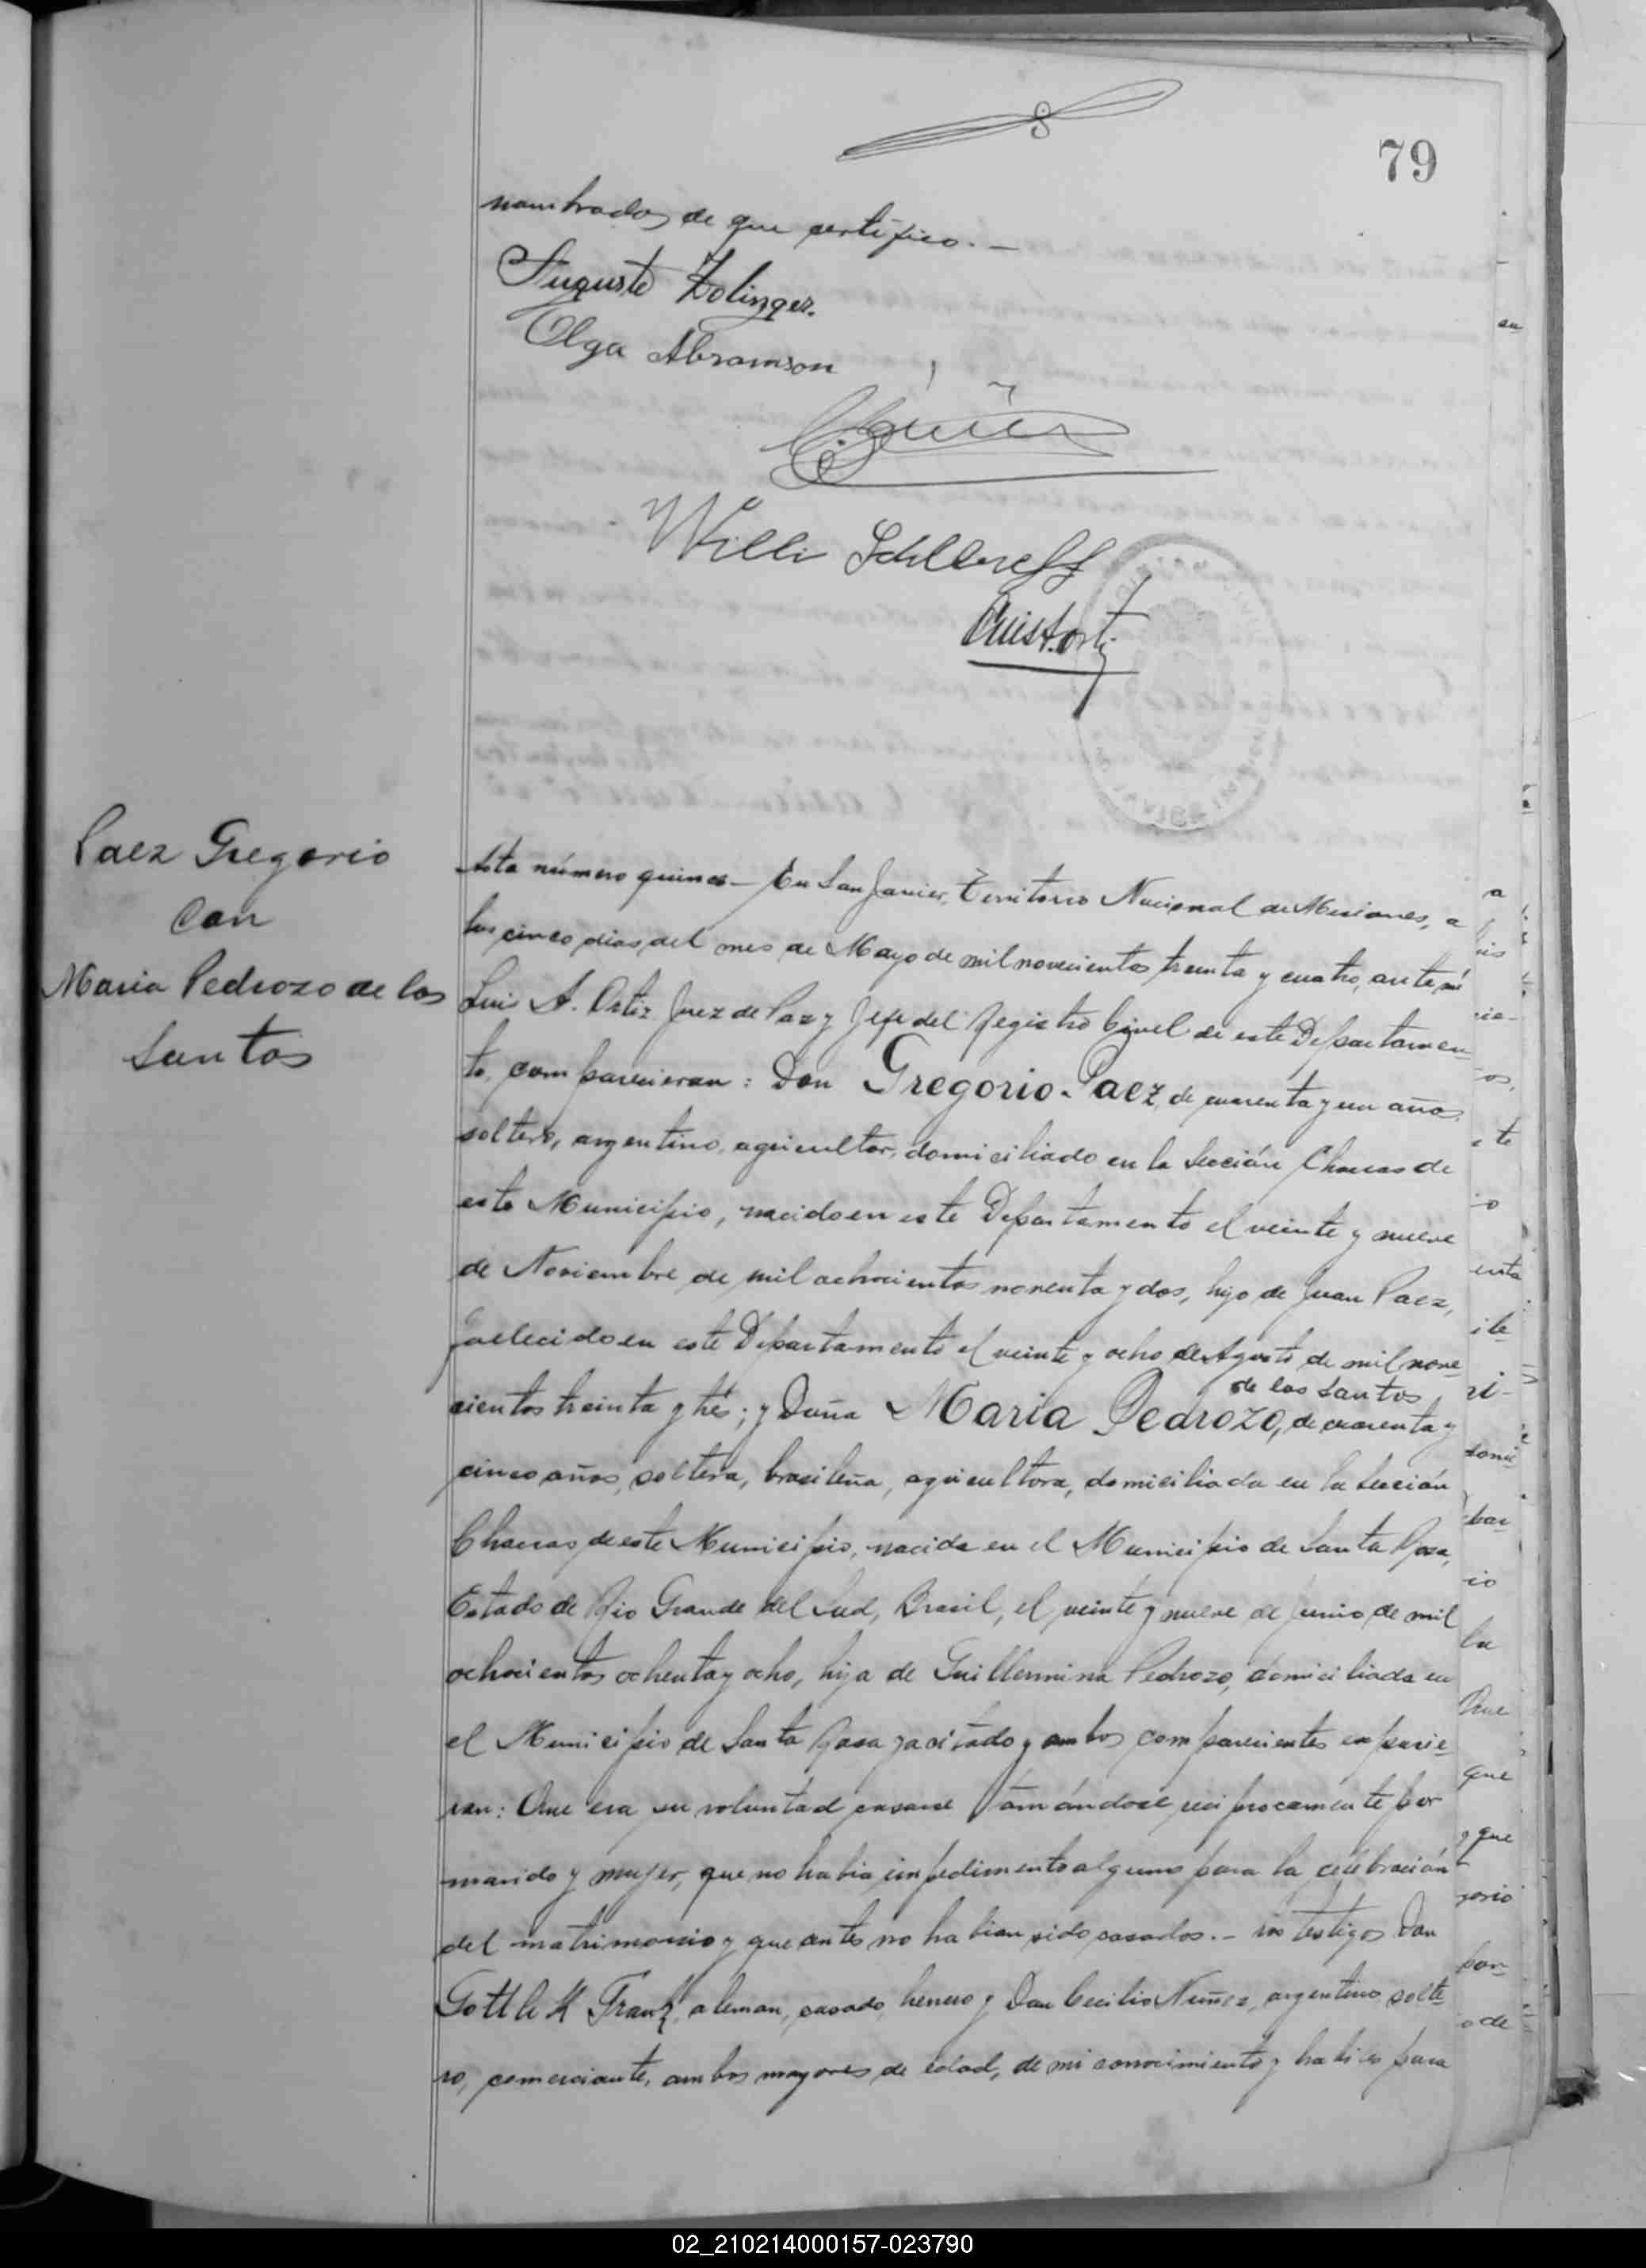 79
nombrados de que certifico. —
Auguste Zolinger.
Olga Abramson
Willi
Luis A. Orti
Paez Gregorio
con
Maria Pedrozo de los
Santos
Acta número quince — En San Javier, Territorio Nacional de Misiones, a
los cinco dias del mes de Mayo de mil novecientos treinta y cuatro, ante mi
Luis A. Ortiz Juez de Paz y Jefe del Registro Civil de este Departamen-
to, comparecieron: Don Gregorio Paez, de cuarenta y un años,
soltero, argentino, agricultor, domiciliado en la Sección Chacras de
este Municipio, nacido en este Departamento el veinte y nueve
de Noviembre de mil ochocientos noventa y dos, hijo de Juan Paez,
faelecido en este Departamento el veinte y ocho de Agosto de mil nove
de los Santos
cientos treinta y trés; y Doña Maria Pedrozo, de cuarenta y
cinco años, soltera, brasileña, agricultora, domiciliada en la Sección
Chacras de este Municipio, nacida en el Municipio de Santa Rosa,
Estado de Rio Grande del Sud, Brasil, el veinte y nueve de Junio de mil
ochocientos ochenta y ocho, hija de Guillermina Pedrozo, domiciliada en
el Municipio de Santa Rosa ya citado y ambos comparecientes expusie-
ron: Que era su voluntad casarse tomándose reciprocamente por
marido y mujer, que no habia impedimento alguno para la celebración
del matrimonio y que antes no habian sido casados. — los testigos Don
Franz, aleman, casado, herrero y Don Cecilio Nuñez, argentino, solte-
ro, comerciante, ambos mayores de edad, de mi conocimiento y habiles para
02_210214000157-023790